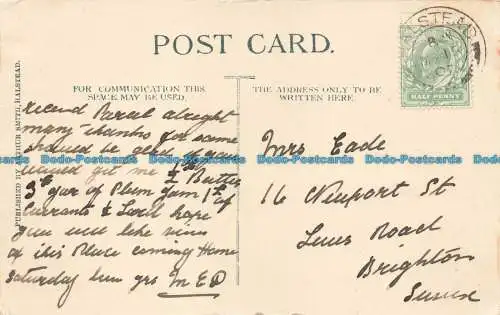 POST CARD.
FOR COMMUNICATION THIS
SPACE MAY BE USED.
THE ADDRESS ONLY TO BE
WRITTEN HERE.
HALSTEAD
HALFPENNY
PUBLISHED BY ARTHUR SMITH, HALSTEAD.
recevd Parcel alright
many thanks for same
should be glad if you
would get me ½ lb Butter
3d jar of Plum Jam 1 lb of
Currants & Lard hope
you will like view
of this Place coming Home
Saturday hun yrs M E P
Mrs Eade
16 Newport St
Lewes Road
Brighton
Sussex
Dodo-Postcards Dodo-Postcards Dodo-Postcards Dodo-Postcards Dodo-Postcards